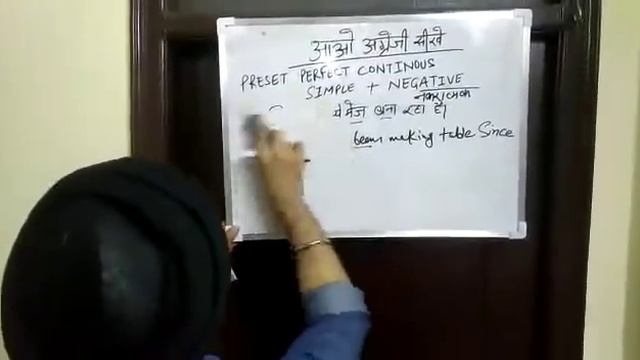 आओ अंग्रेजी सीखे
PRESET PERFECT CONTINOUS
SIMPLE + NEGATIVE
नकारात्मक
मेज बना रहा है।
been making table Since